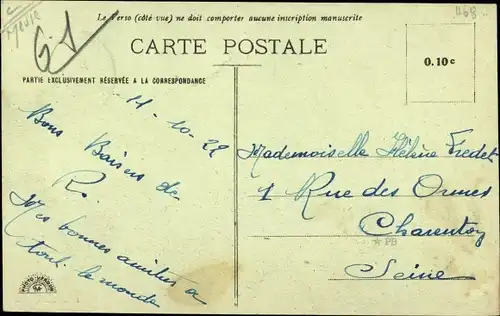 Meuse
Le Verso (côté vue) ne doit comporter aucune inscription manuscrite
CARTE POSTALE
0.10 c
PARTIE EXCLUSIVEMENT RÉSERVÉE A LA CORRESPONDANCE
14-10-22
Bons Baisers de
R.
Mes bonnes amitiés a
tout le monde
Mademoiselle Hélène Fredet
1 Rue des Ormes
Charenton
PB
Seine